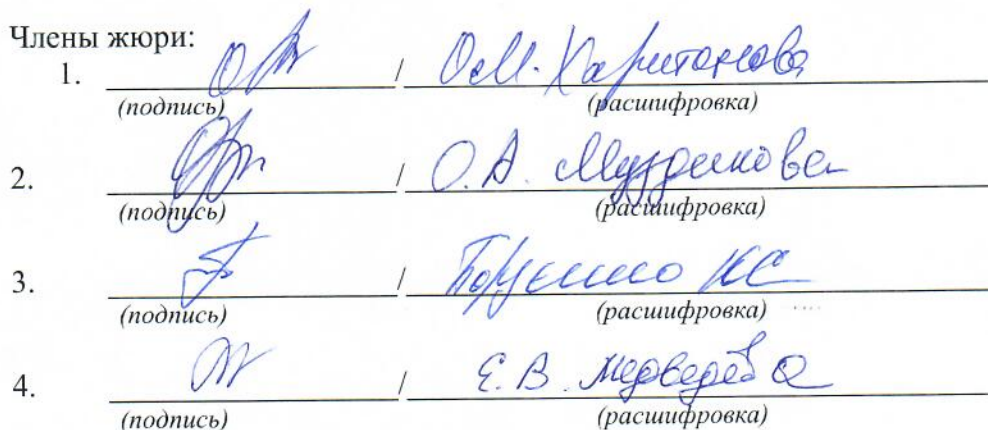 Члены жюри:
1. / О.М. Харитонова
(подпись) (расшифровка)
2. / О.А.
(подпись) (расшифровка)
3. / КС
(подпись) (расшифровка)
4. / Е.В. Медведева
(подпись) (расшифровка)